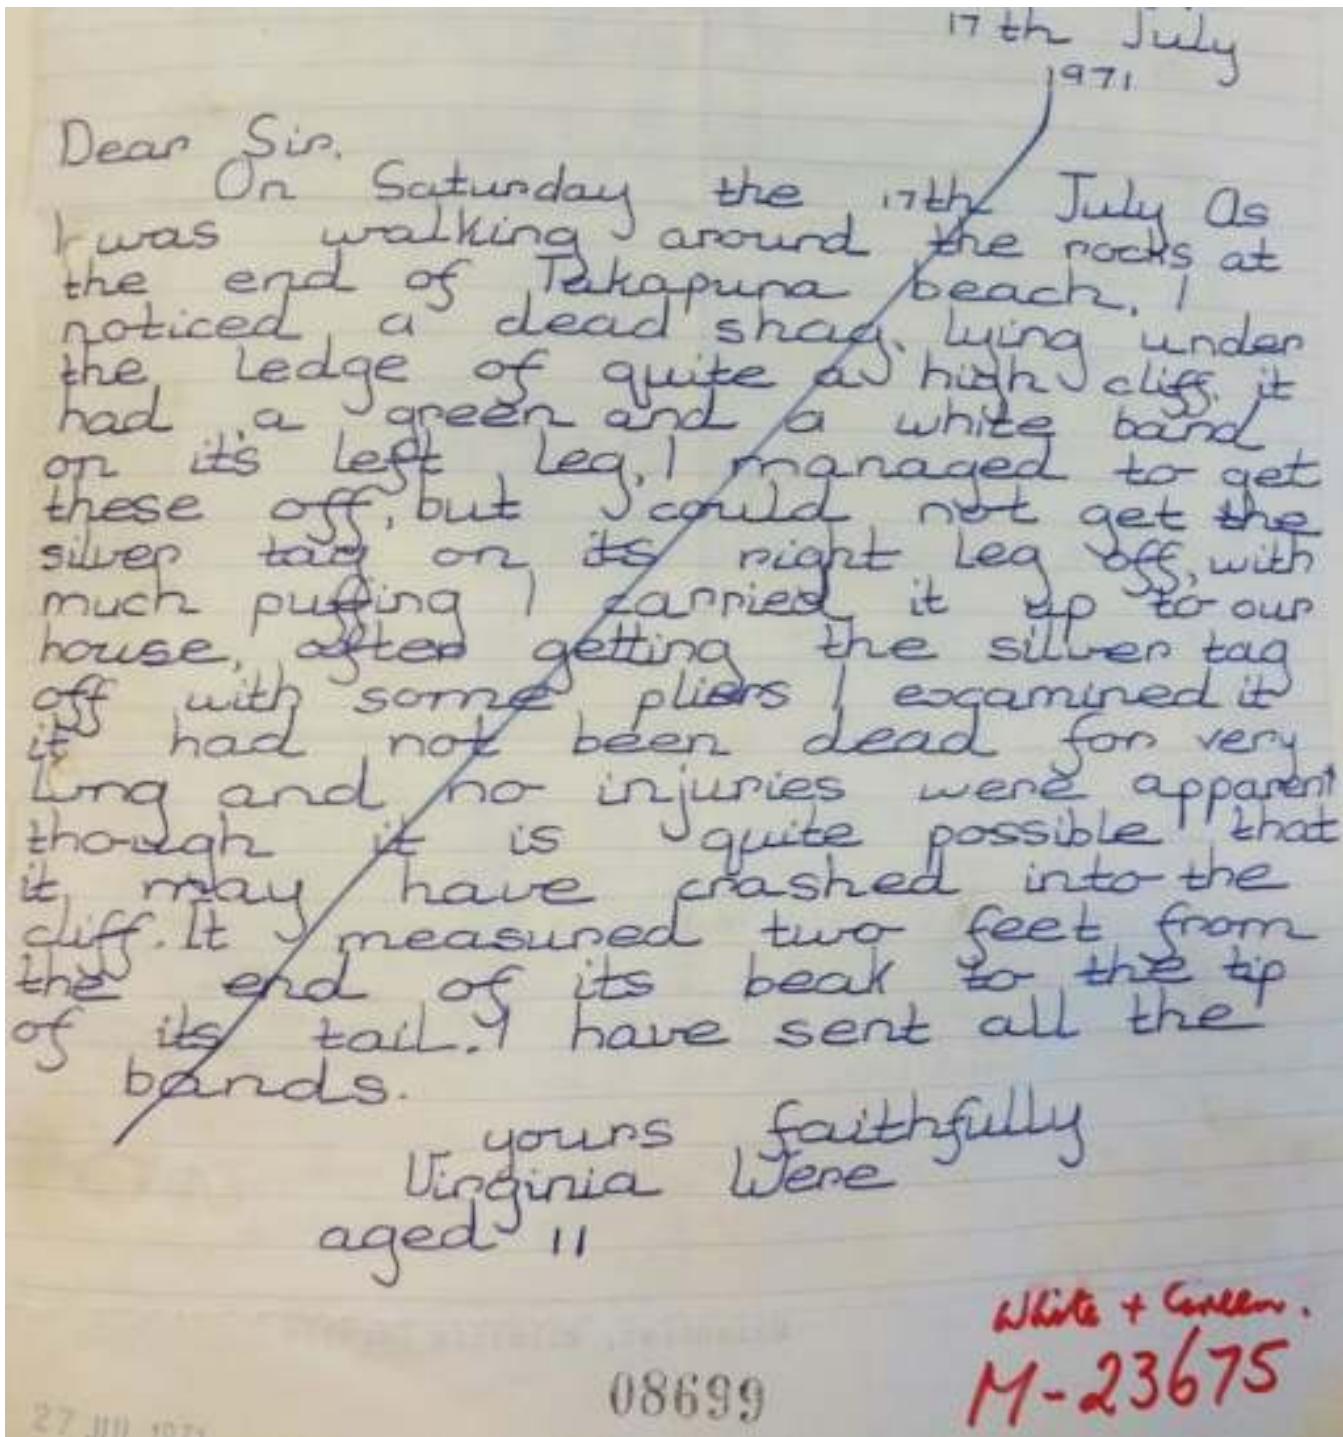 17th July
1971
Dear Sir.
On Saturday the 17th July As
I was walking around the rocks at
the end of Takapuna beach, I
noticed a dead shag, lying under
the ledge of quite a high cliff, it
had a green and a white band
on it's left leg, I managed to get
these off, but I could not get the
silver tag on its right leg off, with
much puffing I carried it up to our
house, after getting the silver tag
off with some pliers I examined it
it had not been dead for very
long and no injuries were apparent
though it is quite possible that
it may have crashed into the
cliff. It measured two feet from
the end of its beak to the tip
of its tail. I have sent all the
bands.
yours faithfully
Virginia Were
aged 11
White + Green.
M-23675
08699
27 JUL 1971